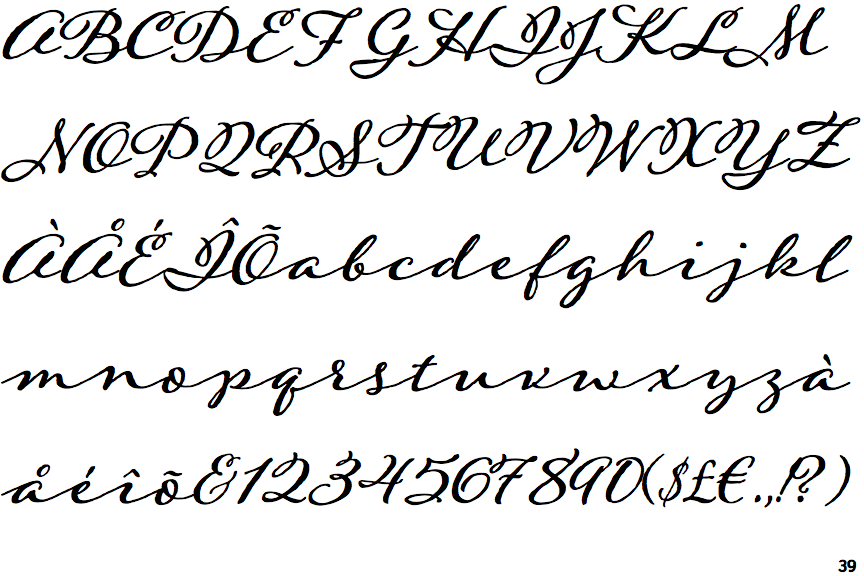 ABCDEFGHIJKLM
NOPQRSTUVWXYZ
ÀÅÉÎÕabcdefghijkl
mnopqrstuvwxyzà
åéîõ&1234567890($£€.,!?)
39